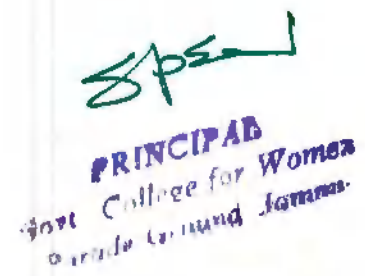 PRINCIPAL
Govt College for Women
Parade Ground Jammu.